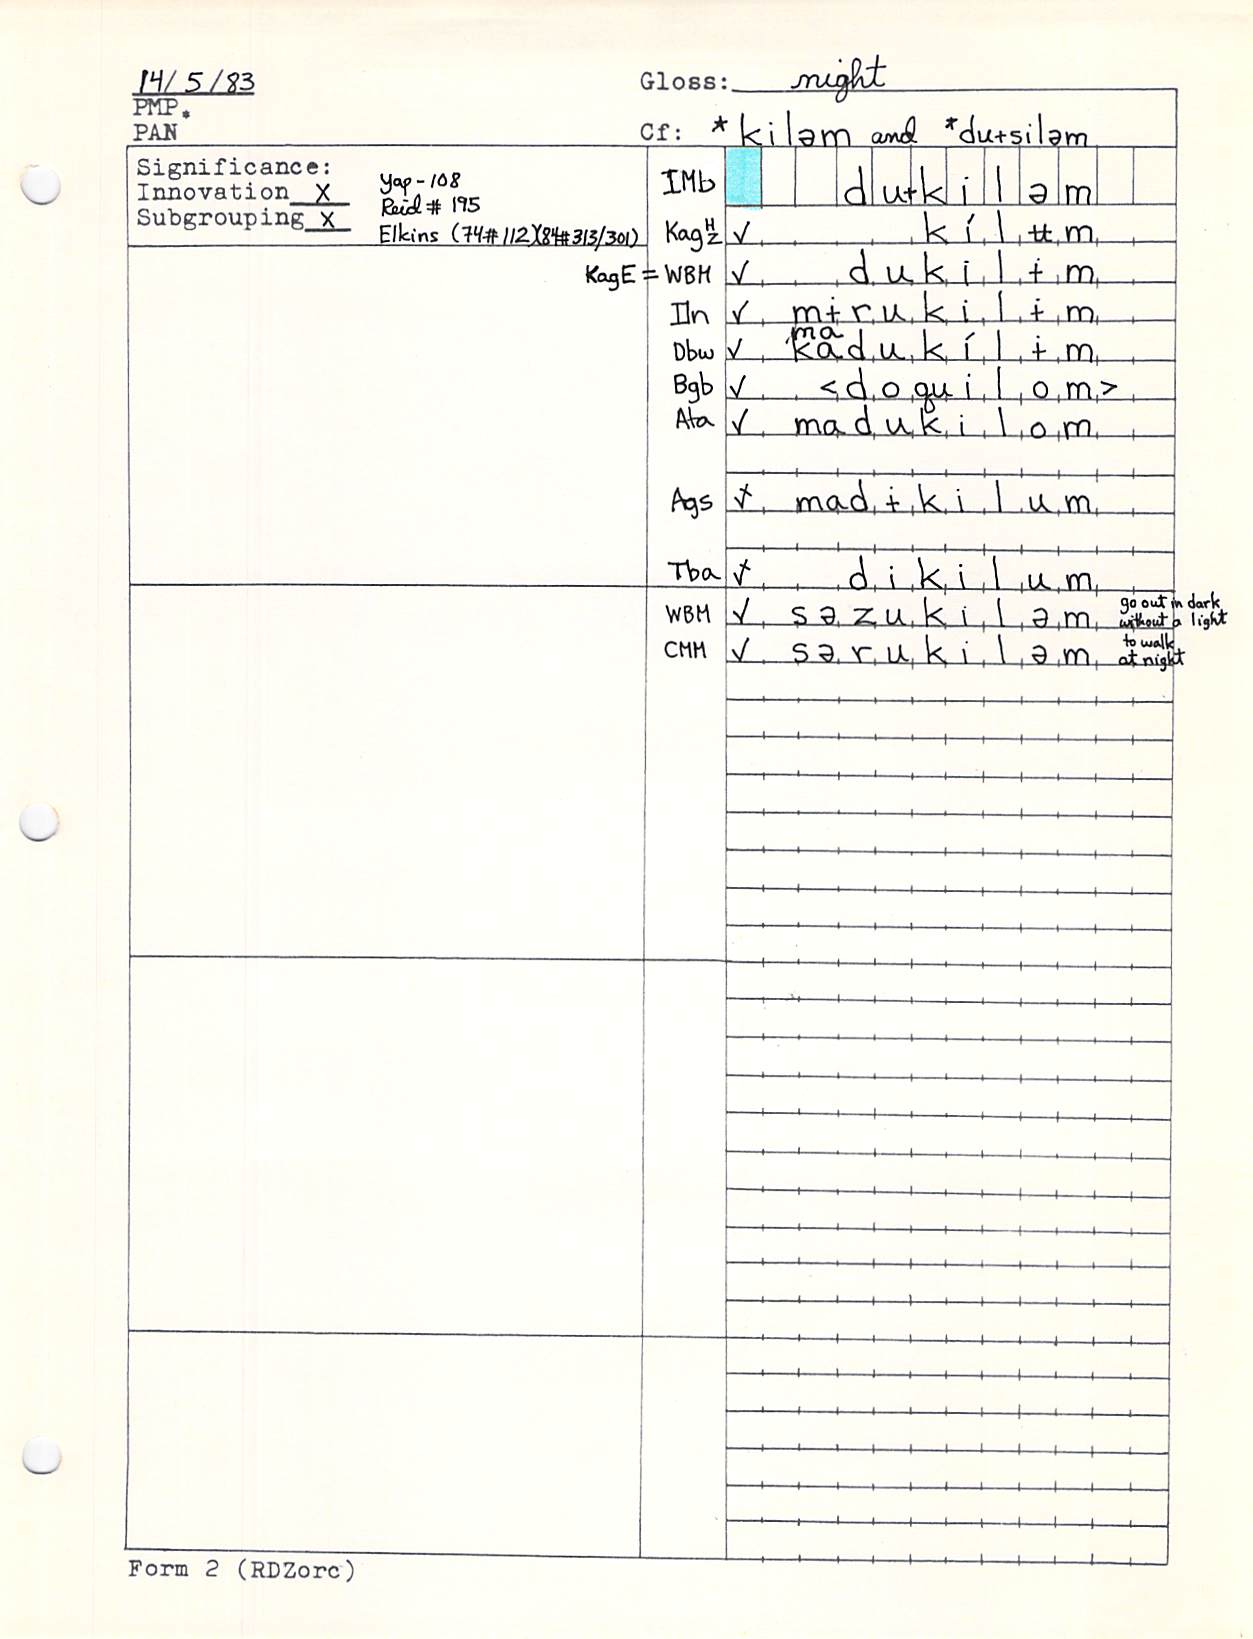 14/5/83 Gloss: night
PMP.
PAN Cf: *kiləm and *du+siləm
Significance:
Innovation X Yap-108
Subgrouping X Reid # 195
Elkins (74#112)(84#313/301)
IMb du+kiləm
Kag H/Z ✓ kílʉm
KagE = WBM ✓ dukilɨm
Iln ✓ mɨrukilɨm
ma
Dbw ✓ kadukílɨm
Bgb ✓ <doquilom>
Ata ✓ madukilom
Ags madɨkilum
Tba dikilum
WBM ✓ səzukiləm go out in dark without a light
CMM ✓ sərukiləm to walk at night
Form 2 (RDZorc)